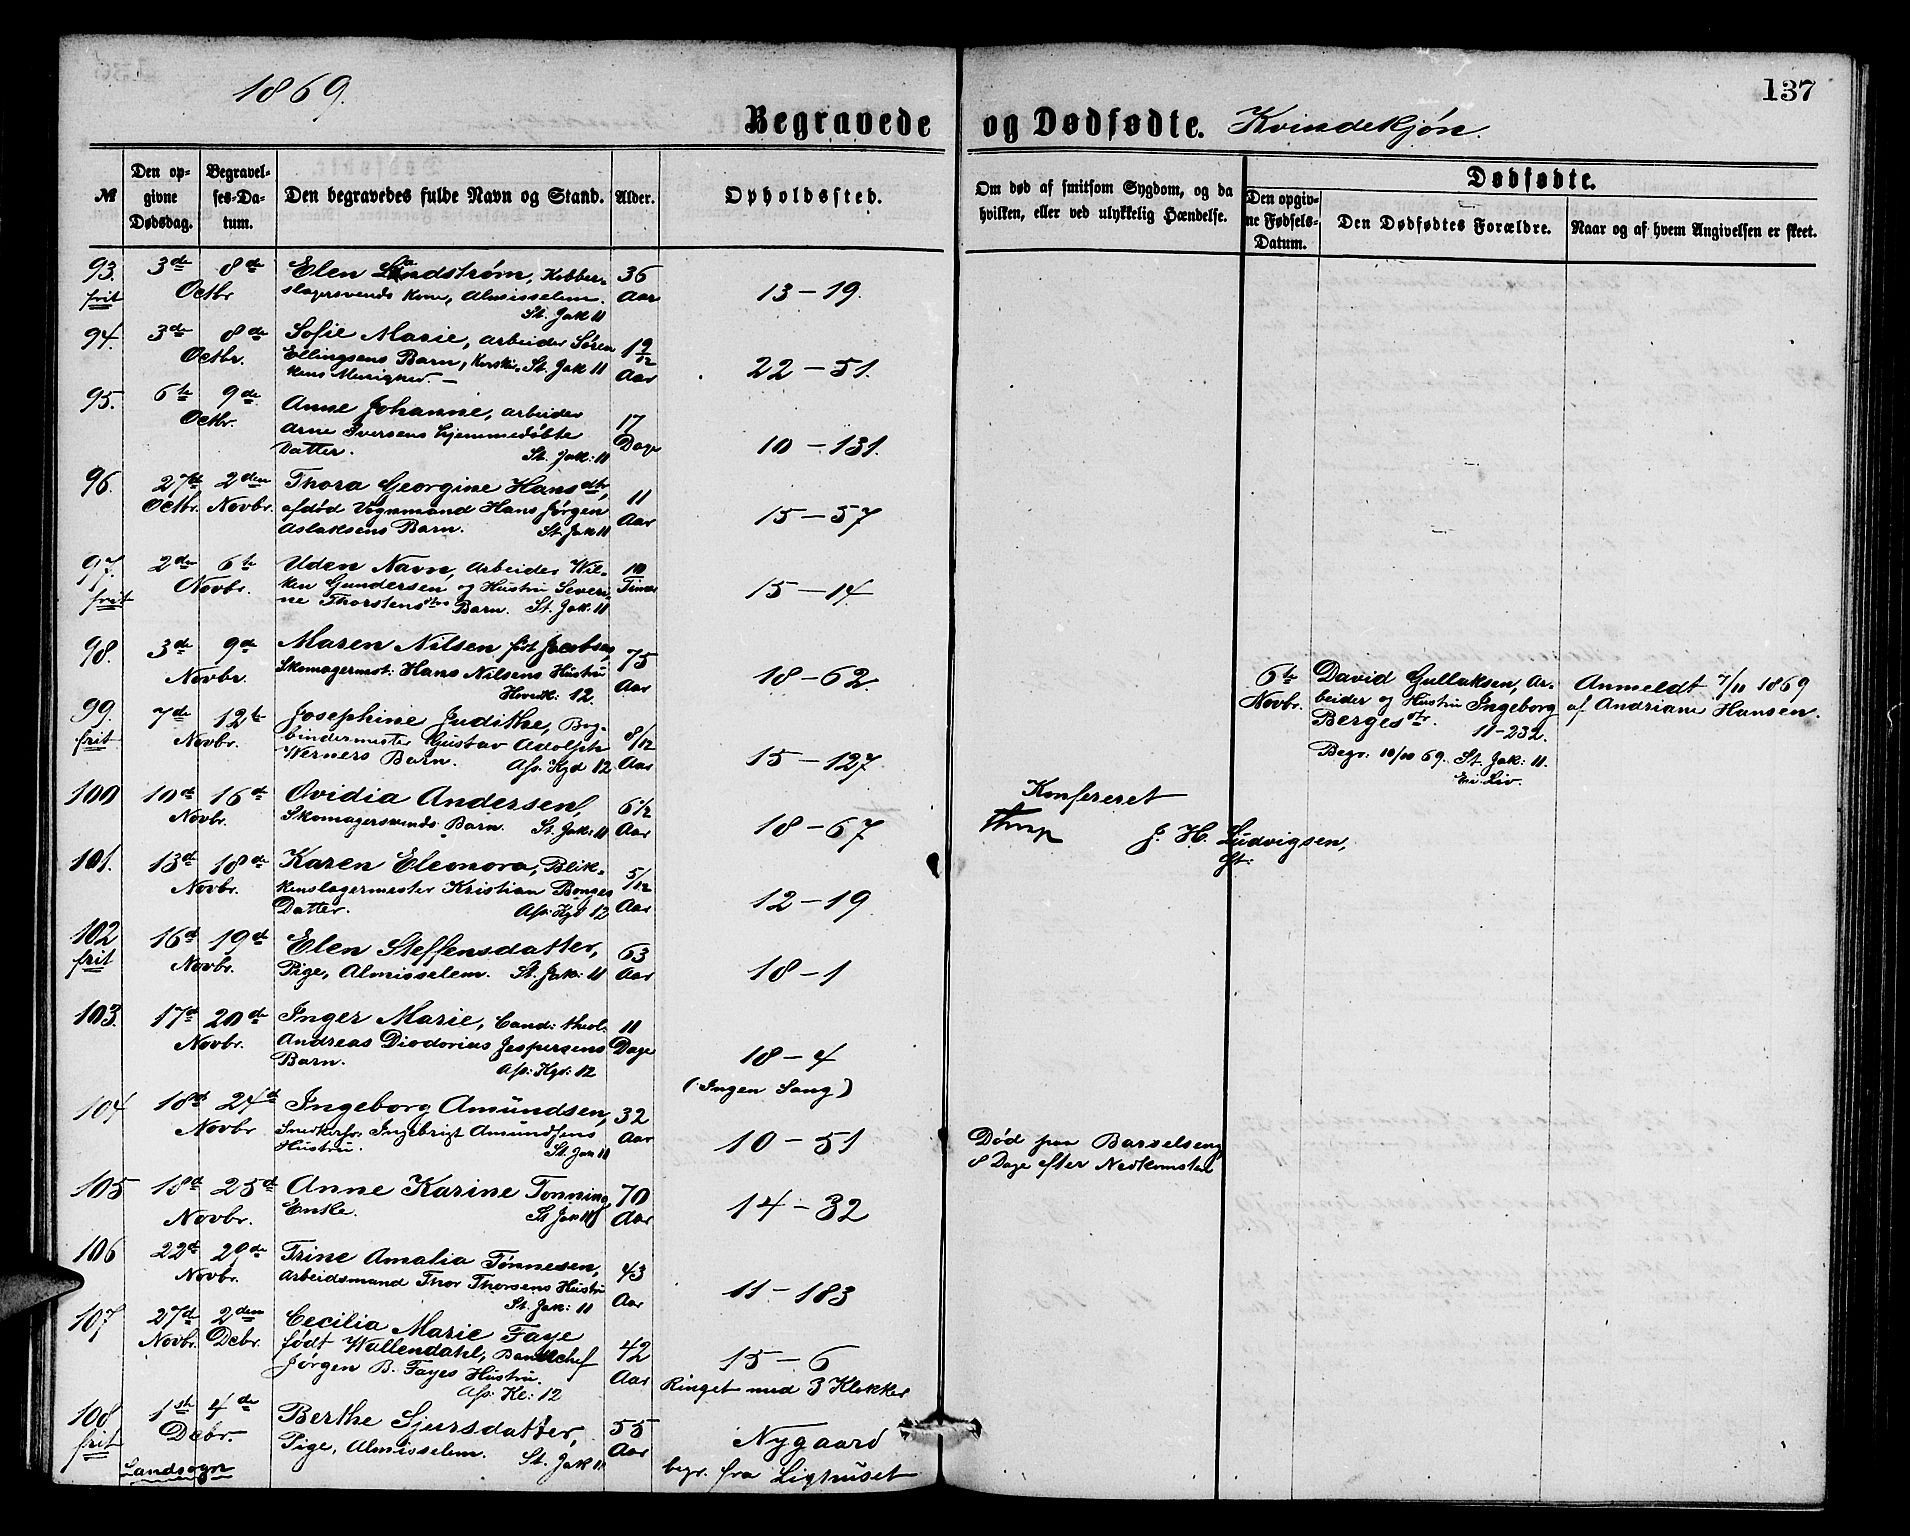 1869.
137
Begravede og Dødfødte. Kvindekjøn.
№
Den opgivne Dødsdag.
Begravelses-Datum.
Den begravedes fulde Navn og Stand.
Alder.
Opholdssted.
Om død af smitsom Sygdom, og da hvilken, eller ved ulykkelig Hændelse.
Dødfødte.
Den opgivne Fødsels-Datum.
Den Dødfødtes Forældre.
Naar og af hvem Angivelsen er skeet.
93. 3de 8de Elen Landstrøm, Kobber- 36
frit Octbr slagersvends Kone, Almisselem. Aar 13-19.
St. Jak 11
94. 3de 8de Sofie Marie, arbeider Søren 1 9/12
Octbr. Ellingsens Barn, St. Jak 11 Aar 22-51.
kens Menighed.-
95. 6te 9de Anne Johanne, arbeider 17
Octbr. Arne Iversens hjemmedøbte Dage 10-131.
Datter. St. Jak: 11
96. 27de 2den Thora Georgine Hansdtr, 11
Octbr. Novbr. afdød Vognmand Hans Jørgen Aar 15-57
Aslaksens Barn. St. Jak 11
97. 2den 6te Uden Navn, Arbeider Wil- 10
frit Novbr. ken Gundersen og Hustru Severi- Timer 15-14.
ne Thorstensdtrs Barn. St. Jak: 11
98. 3de 9de Maren Nilsen født Jacobsen, 75
Novbr. Skomagermst: Hans Nilsens Hustru Aar 18-62.
Hovedk: 12.
99. 7de 12te Josephine Judithe, Bog- 8/12
frit Novbr. bindermester Gustav Adolph Aar 15-127
Werners Barn. Ass. Kgd 12
100 10de 16de Ovidia Andersen, 6 1/2
Novbr. Skomagersvends Barn. St. Jak: 11 Aar 18-67
101. 13de 18de Karen Eleonora, Blik- 5/12
Novbr. kenslagermester Kristian Bonges Aar 12-19
Datter. Ass: Kgd 12
102 16de 19de Elen Steffensdatter, 63
frit Novbr. Pige, Almisselem. St. Jak: 11 Aar 18-1
103. 17de 20de Inger Marie, Cand: theol: 11
Novbr. Andreas Diodorius Jespersens Dage 18-4
Barn. Ass: Kgd: 12 (Ingen Sang)
104 18de 24de Ingeborg Amundsen, 32
Novbr Snedkersv. Ingebrigt Amundsens Aar 10-51
Hustru. St. Jak 11
Død paa Barselseng
8 Dage efter Nedkomsten
105 18de 25de Anne Karine Tonning 70
Novbr. Enke. St. Jak 11 Aar 14-32
106 22de 29de Trine Amalia Tønnesen, 43
Novbr. Arbeidsmand Thor Thorsens Hustru Aar 11-183
St. Jak: 11
107 27de 2den Cecilia Marie Faye
Novbr. Dcbr. født Wallendahl, Bankchef 42
Jørgen B. Fayes Hustru. Aar 15-6
Ass. Kl: 12 Ringet med 3 Klokker
108 1ste 4de Berthe Sjursdatter, 55
frit Dcbr. Pige, Almisselem. St. Jak 11 Aar Nygaard
Landsogn begr. fra Lighuset
6te David Gullaksen, Ar-
Novbr. beider og Hustru Ingeborg
Bergesdtr. 11-232.
Begr. 10/11 69. St. Jak: 11.
Ei Liv.
Anmeldt 7/11 1869
af Andriane Hansen.
Konfereret
J. H. Ludvigsen,